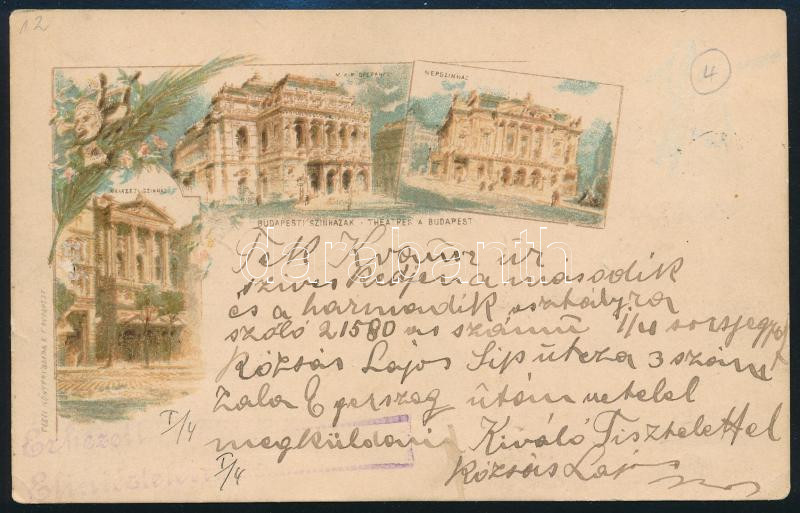 12
4
M. KIR. OPERAHÁZ
NÉPSZINHÁZ
NEMZETI SZINHÁZ
BUDAPESTI SZINHÁZAK - THÉATRES A BUDAPEST
darabanth
Tek Kvanor ur
sziveskedjen a masodik
és a harmadik osztályra
szóló 21580 as számu 1/4 sorsjegyet
Rózsás Lajos Sip útcza 3 szám
Zala Egerszeg útánvetelel
megküldeni Kiváló Tisztelettel
Rózsás Lajos
I/4
I/4
Erkezett
Elintéztetett